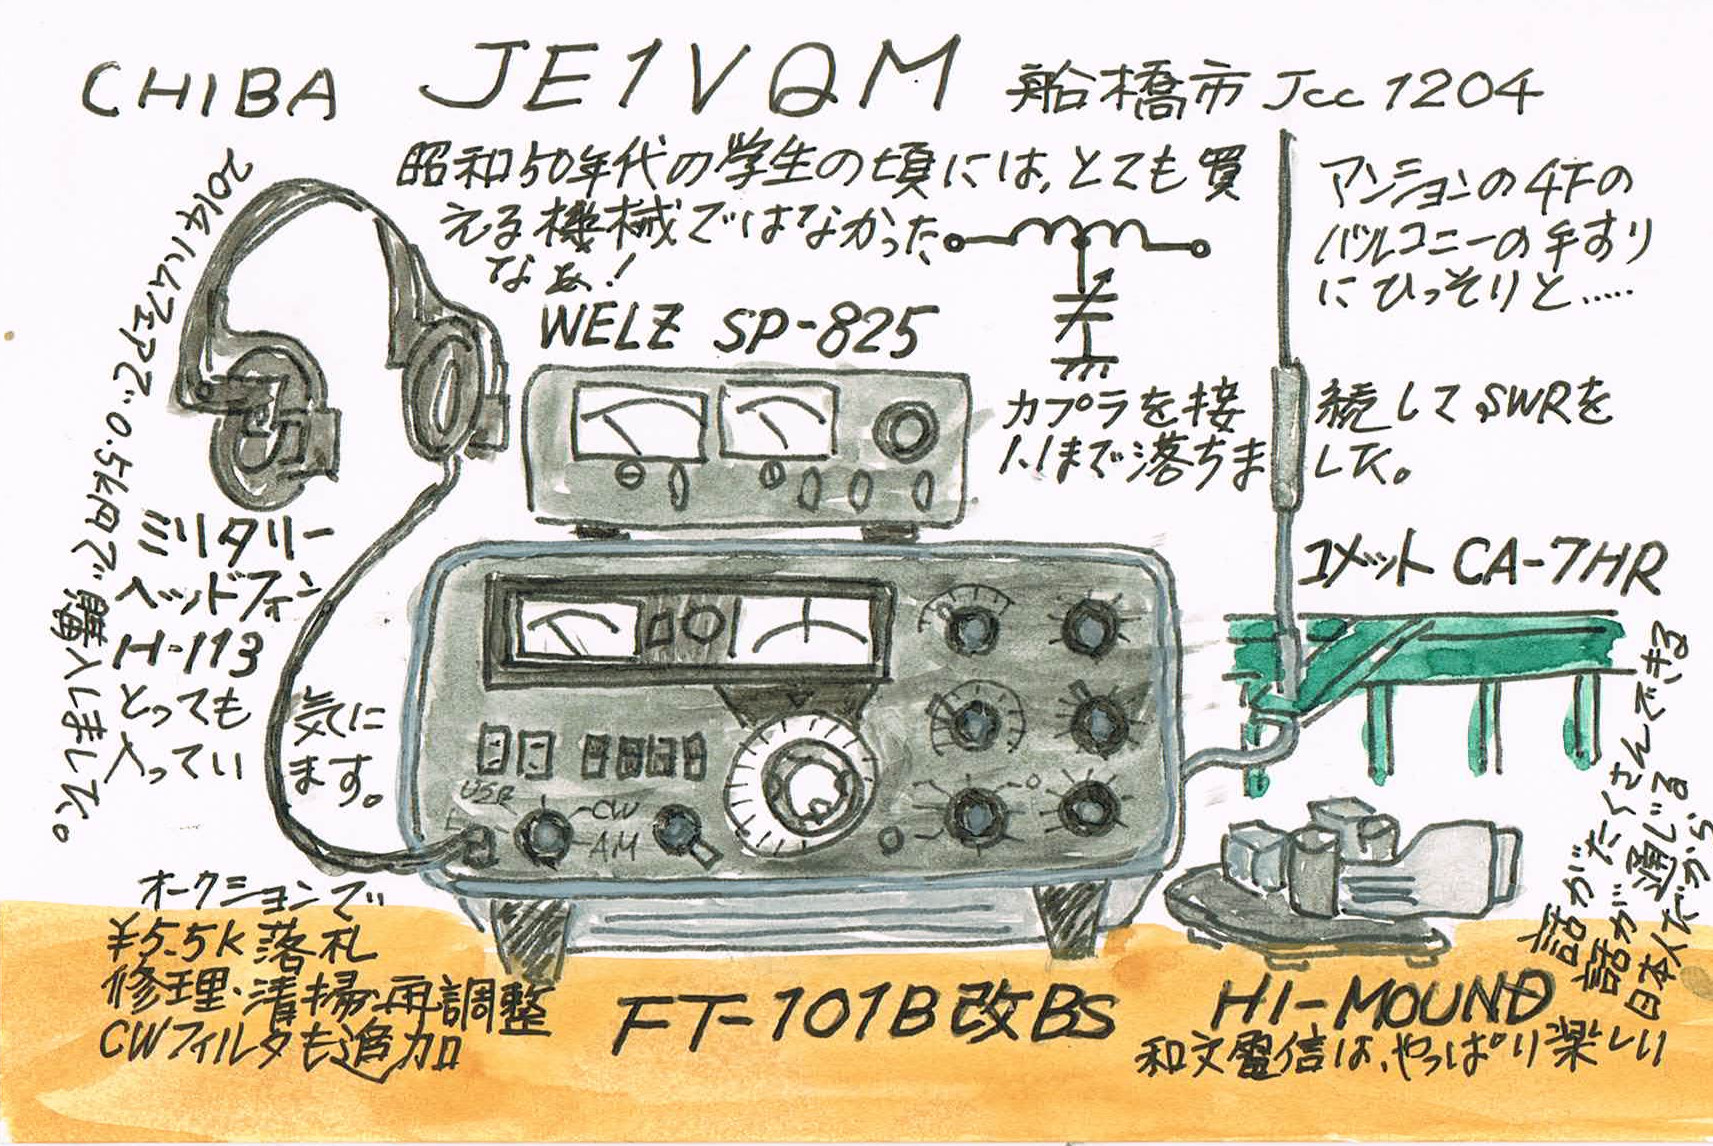 CHIBA JE1VQM 船橋市 Jcc 1204
昭和50年代の学生の頃には、とても買
える機械ではなかった
なぁ!
マンションの4Fの
バルコニーの手すり
にひっそりと.....
WELZ SP-825
カプラを接続してSWRを
1.1まで落ちました。
コメット CA-7HR
2014ハムフェアで0.5k円で
購入しました。
ミリタリー
ヘッドフォン
H-113
とっても気に
入っています。
USB
L
CW
AM
オークションで
¥5.5k落札
修理・清掃・再調整
CWフィルタも追加
FT-101B改BS
HI-MOUND
和文電信は、やっぱり楽しい
話がたくさんできる
話が通じる
日本人だから